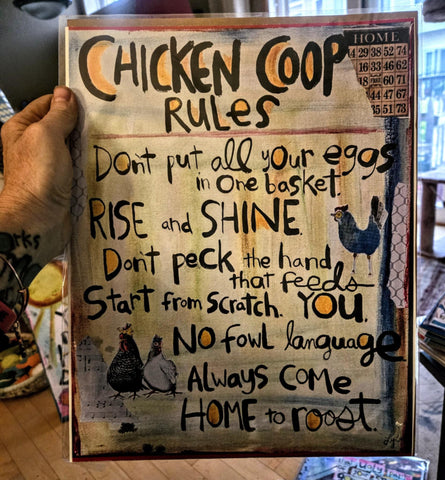 CHICKEN COOP
RULES
HOME
4 29 38 52 74
16 33 46 62
18 60 71
44 47 67
51 73
Dont put all your eggs
in one basket.
RISE and SHINE.
Dont PECK the hand
that feeds
YOU.
Start from Scratch.
NO fowl language
ALWAYS COME
HOME to roost.